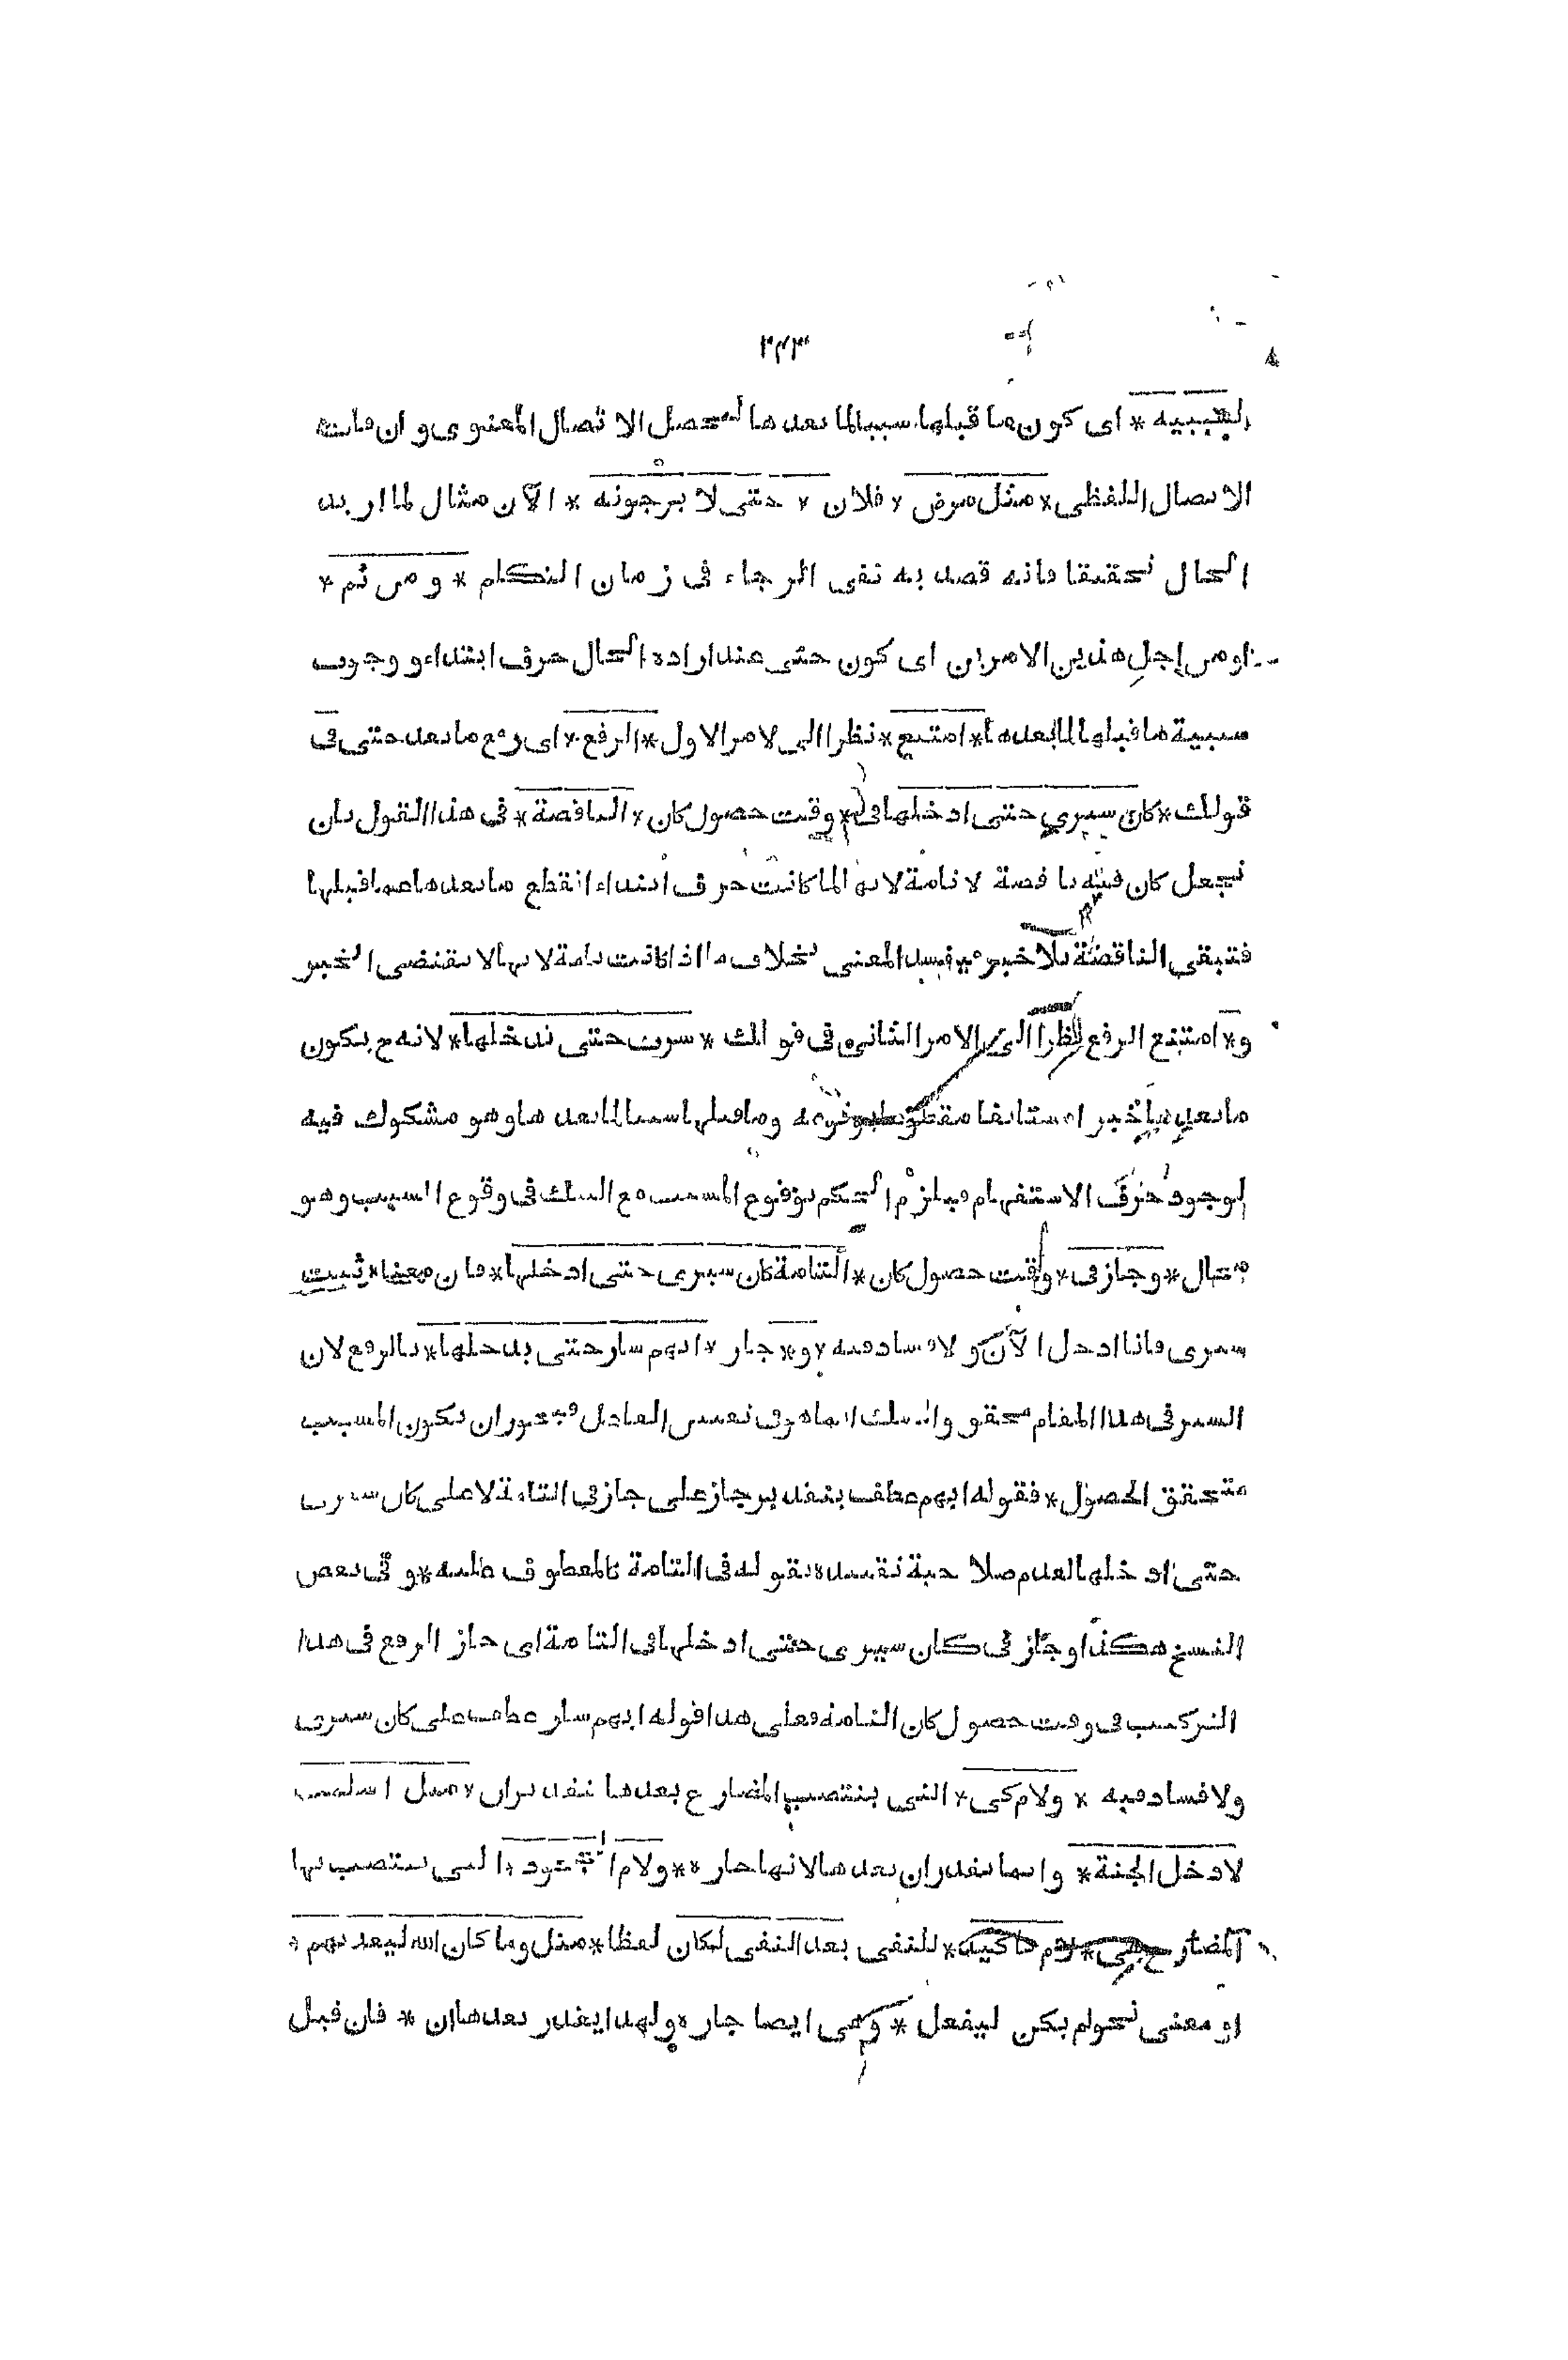 ٣٤٣
السببيه * اى كون ما قبلها سببا لما بعدها ليحصل الاتصال المعنوى وان فات
الاتصال اللفظى * مثل مرض * فلان * حتى لا يرجونه * الآن مثال لما اريد
الحال تحقيقا فانه قصد به نفى الرجاء فى زمان التكلم * ومن ثم *
اومن اجل هذين الامرين اى كون حتى عند ارادة الحال حرف ابتداء و وجوب
سببية ما قبلها لما بعدها * امتنع * نظرا الى لامر الاول * الرفع * اى رفع ما بعد حتى فى
قولك * كان سيرى حتى ادخلها فى * وقت حصول كان * الناقصة * فى هذا القول بان
تجعل كان فيه ناقصة لا تامة لانها لما كانت حرف ابتداء انقطع ما بعدها عما قبلها
فتبقى الناقصة بلا خبر فيفسد المعنى بخلاف ما اذا كانت تامة لانها لا تقتضى الخبر
و * امتنع الرفع نظرا الى الامر الثانى فى قولك * سرت حتى تدخلها * لانه ح يكون
ما بعدها خبر امستانفا مقطوعا بوقوعه وما قبلها سببا لما بعدها وهو مشكوك فيه
لوجود حرف الاستفهام فيلزم الحكم بوقوع المسبب مع الشك فى وقوع السبب وهو
محال * وجاز فى * وقت حصول كان * التامة كان سيرى حتى ادخلها * فان معناه ثبت
سيرى فانا ادخل الآن ولا فساد فيه * و * جاز * ايهم سار حتى يدخلها * بالرفع لان
السير فى هذا المقام محقق والشك انما هو فى تعيين الفاعل فيجوز ان يكون المسبب
متحقق الحصول * فقوله ايهم عطف بتقدير جاز على جاز فى التامة لا على كان سيرى
حتى ادخلها لعدم صلاحية تقييده بقوله فى التامة كالمعطوف عليه * و فى بعض
النسخ هكذا وجاز فى كان سيرى حتى ادخلها فى التامة اى جاز الرفع فى هذا
التركيب فى وقت حصول كان التامة فعلى هذا قوله ايهم سار عطف على كان سيرى
ولا فساد فيه * ولام كى * التى ينتصب المضارع بعدها بتقدير ان * مثل اسلمت
لادخل الجنة * وانما تقدر ان بعدها لانها جارة * * ولام الجحود * التى ينتصب بها
المضارع هى * لام تاكيد * للنفى بعد النفى لكان لفظا * مثل وما كان الله ليعذبهم *
او معنى نحو لم يكن ليفعل * وهى ايضا جارة ولهذا يقدر بعدها ان * فان قيل